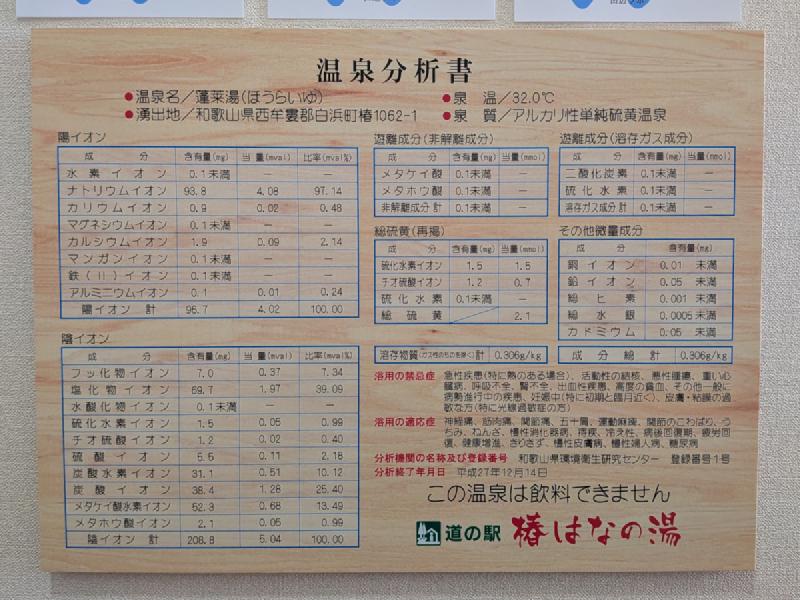 温泉分析書
●温泉名／蓬莱湯(ほうらいゆ)
●湧出地／和歌山県西牟婁郡白浜町椿1062-1
●泉 温／32.0℃
●泉 質／アルカリ性単純硫黄温泉
陽イオン
成 分 含有量(mg) 当量(mval) 比率(mval%)
水素イオン 0.1未満 － －
ナトリウムイオン 93.8 4.08 97.14
カリウムイオン 0.9 0.02 0.48
マグネシウムイオン 0.1未満 － －
カルシウムイオン 1.9 0.09 2.14
マンガンイオン 0.1未満 － －
鉄(II)イオン 0.1未満 － －
アルミニウムイオン 0.1 0.01 0.24
陽イオン計 96.7 4.02 100.00
陰イオン
成 分 含有量(mg) 当量(mval) 比率(mval%)
フッ化物イオン 7.0 0.37 7.34
塩化物イオン 69.7 1.97 39.09
水酸化物イオン 0.1未満 － －
硫化水素イオン 1.5 0.05 0.99
チオ硫酸イオン 1.2 0.02 0.40
硫酸イオン 5.5 0.11 2.18
炭酸水素イオン 31.1 0.51 10.12
炭酸イオン 38.4 1.28 25.40
メタケイ酸水素イオン 52.3 0.68 13.49
メタホウ酸イオン 2.1 0.05 0.99
陰イオン計 208.8 5.04 100.00
遊離成分(非解離成分)
成 分 含有量(mg) 当量(mmol)
メタケイ酸 0.1未満 －
メタホウ酸 0.1未満 －
非解離成分計 0.1未満 －
遊離成分(溶存ガス成分)
成 分 含有量(mg) 当量(mmol)
二酸化炭素 0.1未満 －
硫化水素 0.1未満 －
溶存ガス成分計 0.1未満 －
総硫黄(再掲)
成 分 含有量(mg) 当量(mmol)
硫化水素イオン 1.5 1.5
チオ硫酸イオン 1.2 0.7
硫化水素 0.1未満 －
総硫黄 2.1
その他微量成分
成 分 含有量(mg)
銅イオン 0.01 未満
鉛イオン 0.05 未満
総ヒ素 0.001 未満
総水銀 0.0005未満
カドミウム 0.05 未満
溶存物質(ガス性のものを除く)計 0.306g/kg
成分総計 0.306g/kg
浴用の禁忌症 急性疾患(特に熱のある場合)、活動性の結核、悪性腫瘍、重い心
臓病、呼吸不全、腎不全、出血性疾患、高度の貧血、その他一般に
病勢進行中の疾患、妊娠中(特に初期と臨月近く)、皮膚・粘膜の過
敏な方(特に光線過敏症の方)
浴用の適応症 神経痛、筋肉痛、関節痛、五十肩、運動麻痺、関節のこわばり、う
ちみ、ねんざ、慢性消化器病、痔疾、冷え性、病後回復期、疲労回
復、健康増進、きりきず、慢性皮膚病、慢性婦人病、糖尿病
分析機関の名称及び登録番号 和歌山県環境衛生研究センター 登録番号1号
分析終了年月日 平成27年12月14日
この温泉は飲料できません
道の駅 椿はなの湯